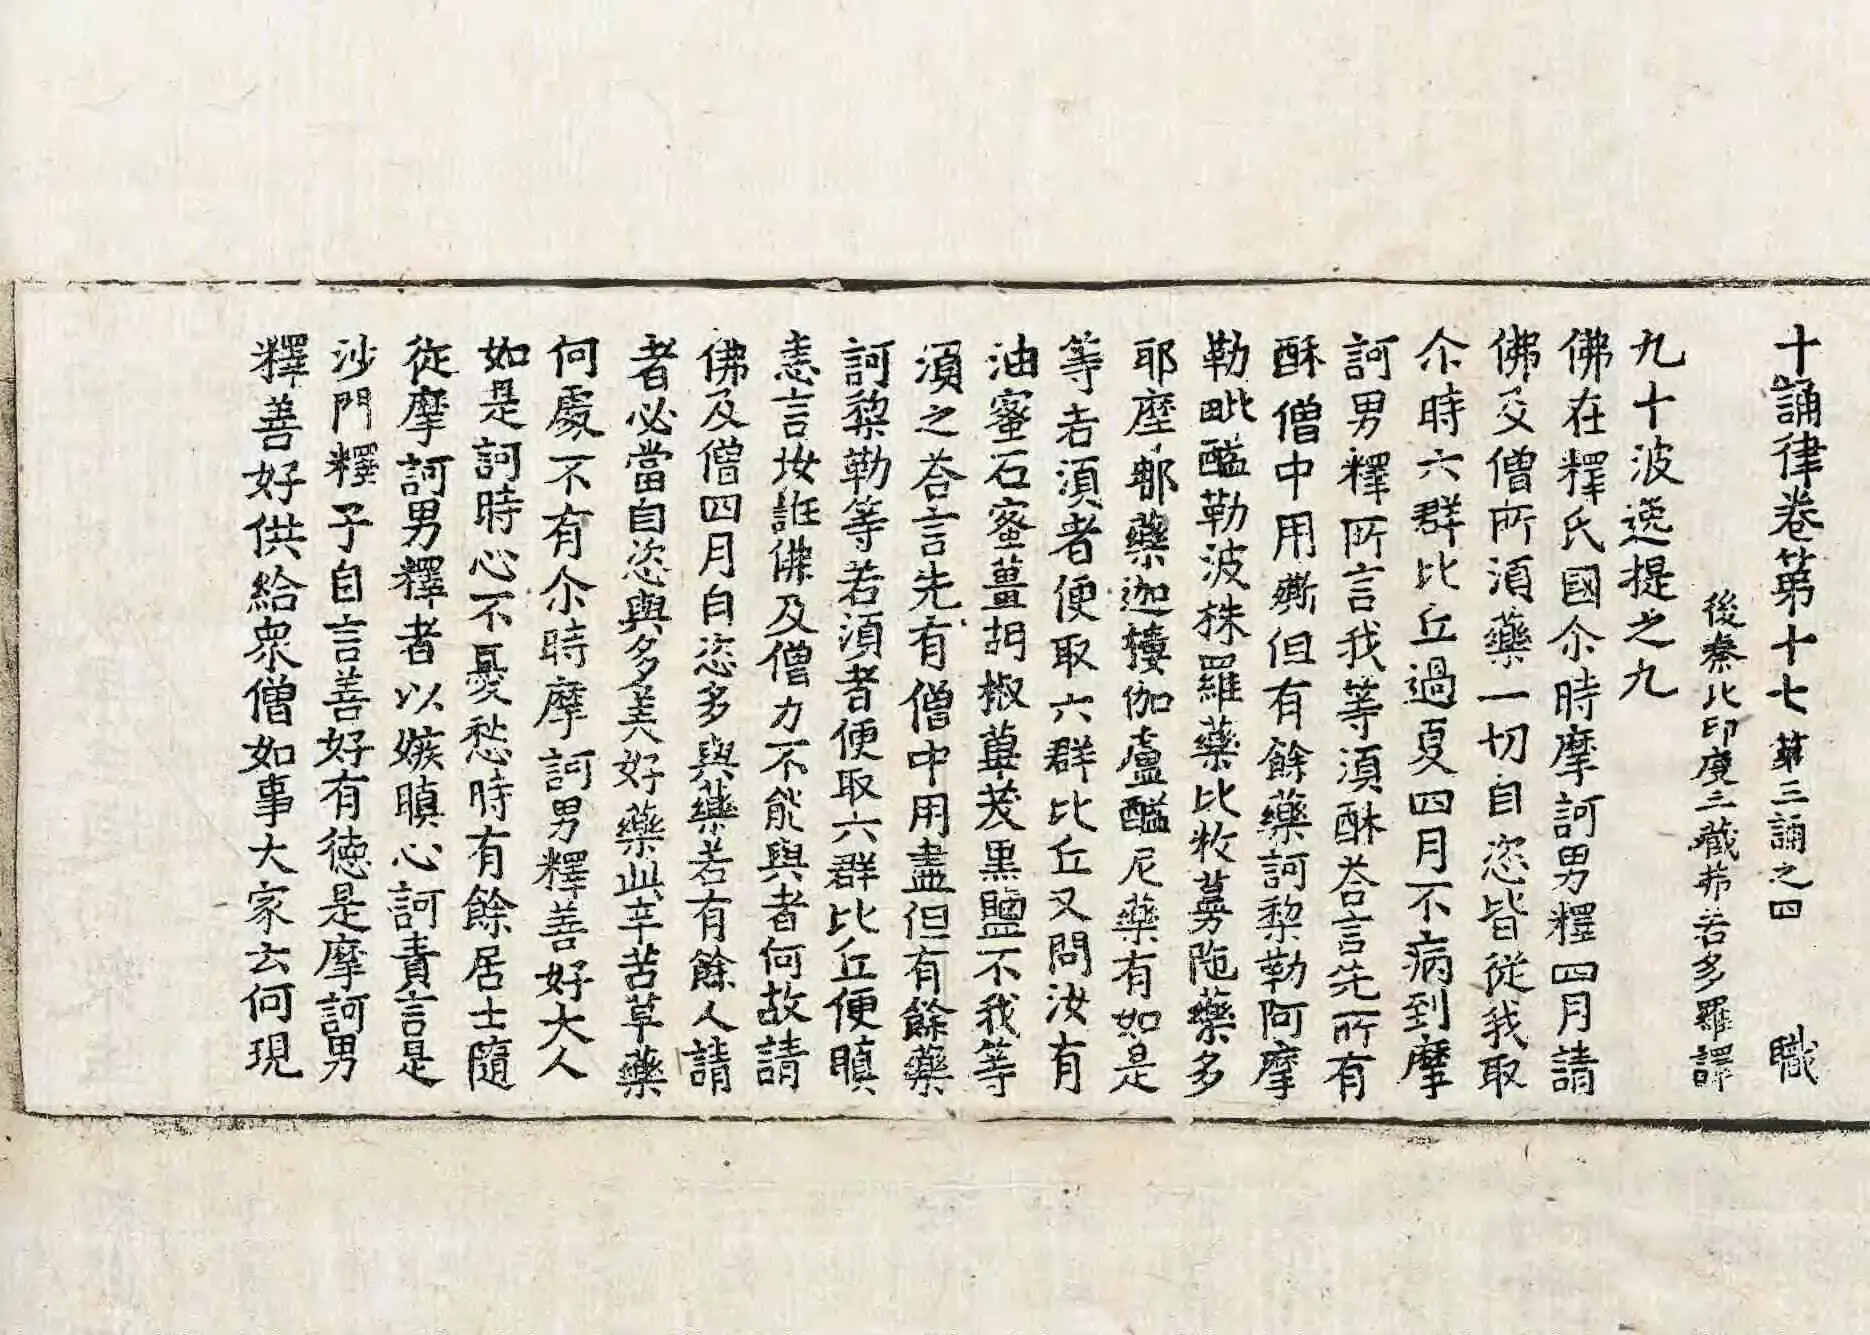 十誦律卷第十七 第三誦之四 職
後秦北印度三藏弗若多羅譯
九十波逸提之九
佛在釋氏國尒時摩訶男釋四月請
佛及僧所湏藥一切自恣皆從我取
尒時六群比丘過夏四月不病到摩
訶男釋所言我等湏酥荅言先所有
酥僧中用嘶但有餘藥訶梨勒阿摩
勒毗醯勒波株羅藥比牧蔓陁藥多
耶摩那藥迦摟伽盧醯尼藥有如是
等若湏者便取六群比丘又問汝有
油蜜石蜜薑胡椒蓽茇黒鹽不我等
湏之荅言先有僧中用盡但有餘藥
訶梨勒等若湏者便取六群比丘便瞋
恚言汝誑佛及僧力不能與者何故請
佛及僧四月自恣多與藥若有餘人請
者必當自恣與多美好藥此辛苦草藥
何處不有尒時摩訶男釋善好大人
如是訶時心不憂愁時有餘居士隨
從摩訶男釋者以嫉瞋心訶責言是
沙門釋子自言善好有德是摩訶男
釋善好供給衆僧如事大家去何現